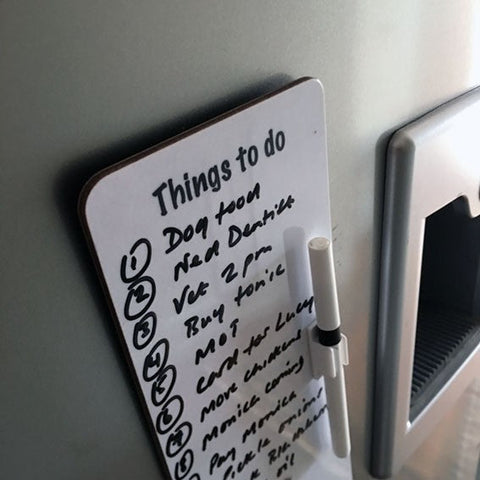 Things to do
1 Dog food
2 Ned Dentist
3 Vet 2pm
4 Buy tonic
5 MOT
6 Card for Lucy
7 More chicken
8 Monica coming
Pay Monica
Pickle onions
oil